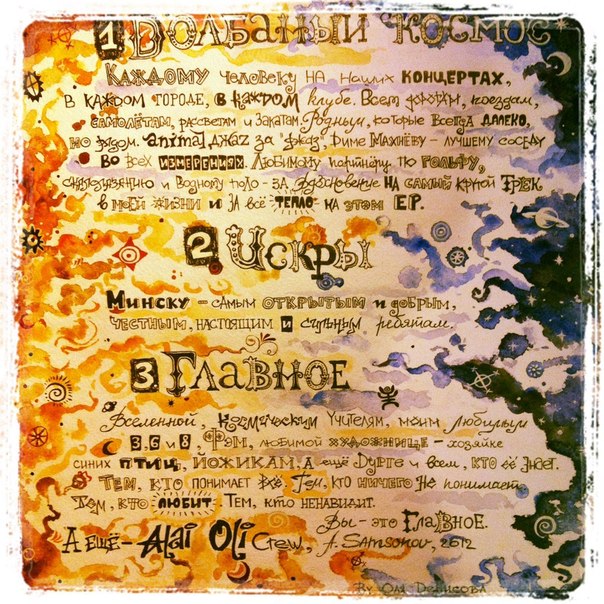 1 Долбаный космос
Каждому человеку на наших концертах,
в каждом городе, в каждом клубе. Всем поездам,
самолётам, рассветам и закатам. Родным, которые всегда далеко,
но рядом. Animal Джаz за "джаз", Диме Махнёву - лучшему соседу
во всех измерениях. Любимому партнёру по гольфу,
и водному поло - за вдохновение на самый крутой трек
в моей жизни и за всё тепло на этом EP.
2 Искры
Минску - самым открытым и добрым,
честным, настоящим и сильным ребятам.
3 Главное
Вселенной, Космическим Учителям, моим любимым
3, 6 и 8 Фэм, любимой художнице - хозяйке
синих птиц, йожикам, а ещё Дурге и всем, кто её знает.
Тем, кто понимает всё. Тем, кто ничего не понимает.
Тем, кто любит. Тем, кто ненавидит.
Вы - это Главное.
А ещё - Alai Oli Crew, A. Samsonov, 2012
By Оля Денисова